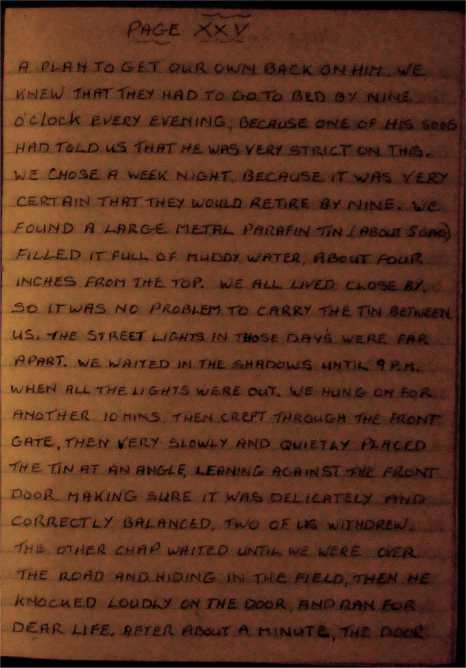 PAGE XXV
A PLAN TO GET OUR OWN BACK ON HIM. WE
KNEW THAT THEY HAD TO GO TO BED BY NINE
O'CLOCK EVERY EVENING, BECAUSE ONE OF HIS SONS
HAD TOLD US THAT HE WAS VERY STRICT ON THIS.
WE CHOSE A WEEK NIGHT, BECAUSE IT WAS VERY
CERTAIN THAT THEY WOULD RETIRE BY NINE. WE
FOUND A LARGE METAL PARAFIN TIN (ABOUT 5 GAL)
FILLED IT FULL OF MUDDY WATER, ABOUT FOUR
INCHES FROM THE TOP. WE ALL LIVED CLOSE BY,
SO IT WAS NO PROBLEM TO CARRY THE TIN BETWEEN
US. THE STREET LIGHTS IN THOSE DAYS WERE FAR
APART. WE WAITED IN THE SHADOWS UNTIL 9 P.M.
WHEN ALL THE LIGHTS WERE OUT. WE HUNG ON FOR
ANOTHER 10 MINS. THEN CREPT THROUGH THE FRONT
GATE, THEN VERY SLOWLY AND QUIETLY PLACED
THE TIN AT AN ANGLE, LEANING AGAINST THE FRONT
DOOR MAKING SURE IT WAS DELICATELY AND
CORRECTLY BALANCED, TWO OF US WITHDREW.
THE OTHER CHAP WAITED UNTIL WE WERE OVER
THE ROAD AND HIDING IN THE FIELD, THEN HE
KNOCKED LOUDLY ON THE DOOR, AND RAN FOR
DEAR LIFE. AFTER ABOUT A MINUTE, THE DOOR